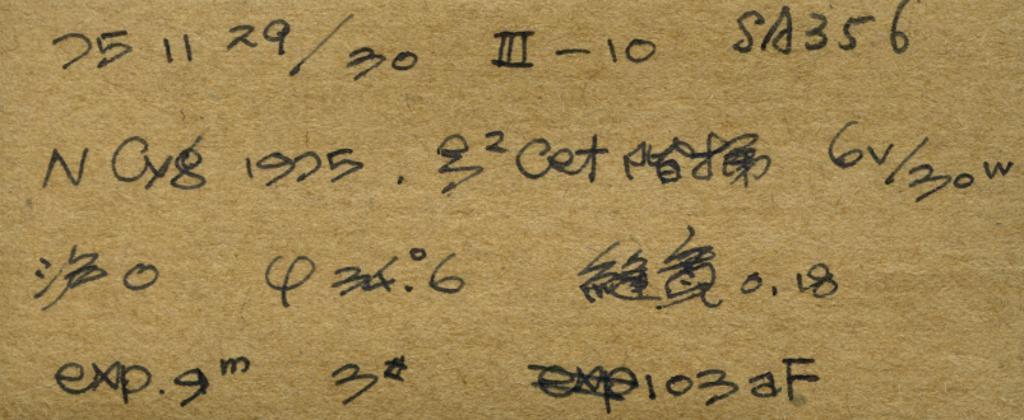 75 11 29/30 III-10 SA356
N Cyg 1975. ξ² Cet 階梯 6v/30w
滤0 φ 34.°6 縫寬 0.18
exp. 9ᵐ 3# 103aF